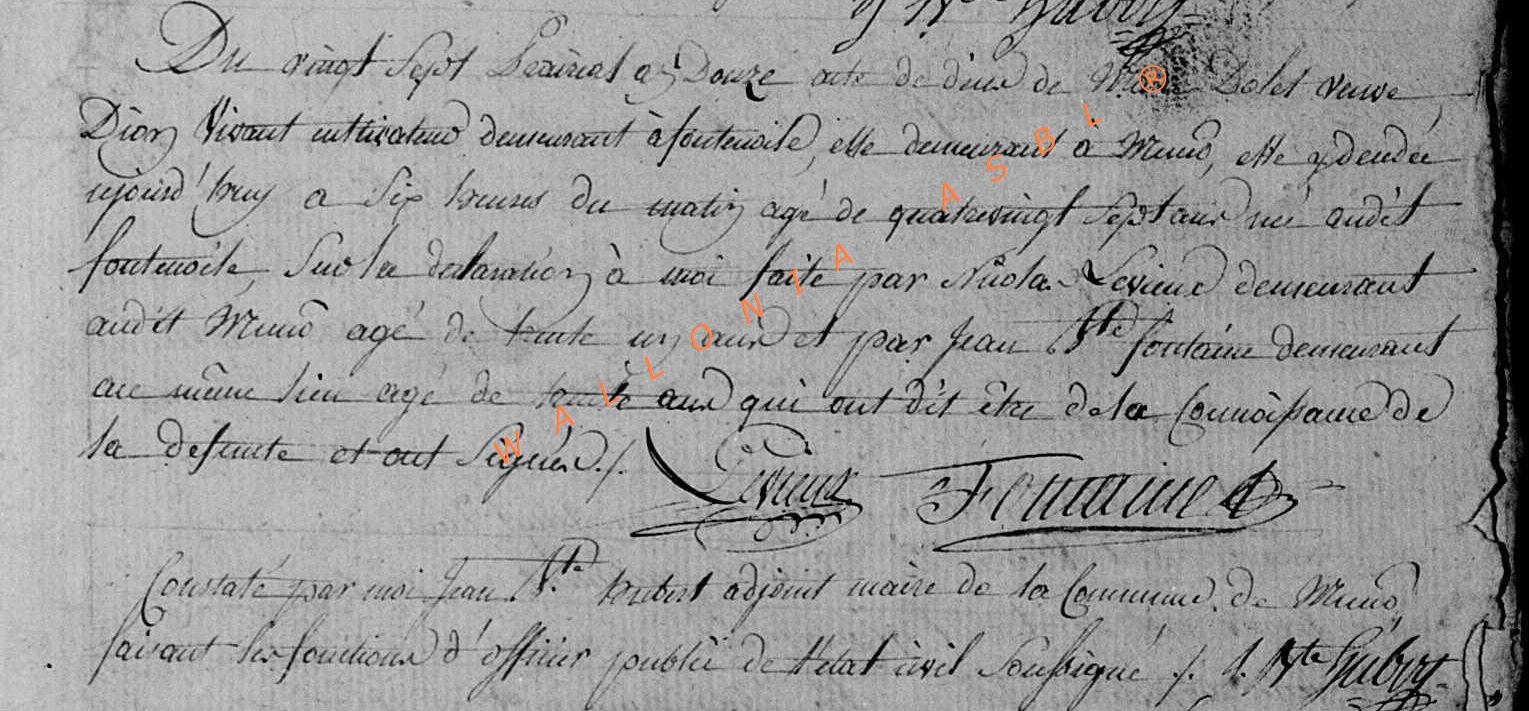 J Bte Hubert
Du vingt Sept Prairial an Douze acte de décès de Dolet veuve
Dion Vivant cultivateur demeurant à fontenoile, elle demeurant à Muno, elle y décedée
ajourd'huy a Six heures du matin agé de quatrevingt Sept ans née audit
fontenoile, Sur la déclaration à moi faite par Nicolas Levieux demeurant
audit Muno agé de trente un ans et par Jean Bte fontaine demeurant
au même lieu agé de trente ans qui ont dit être de la Connoissance de
la defunte et ont Signés ./.
Levieux Fontaine
Constaté par moi Jean Bte hubert adjoint maire de la Commune de Muno
faisant les fonctions d'officier public de l'etat civil Soussigné ./. J. Bte Hubert
WALLONIA ASBL ®